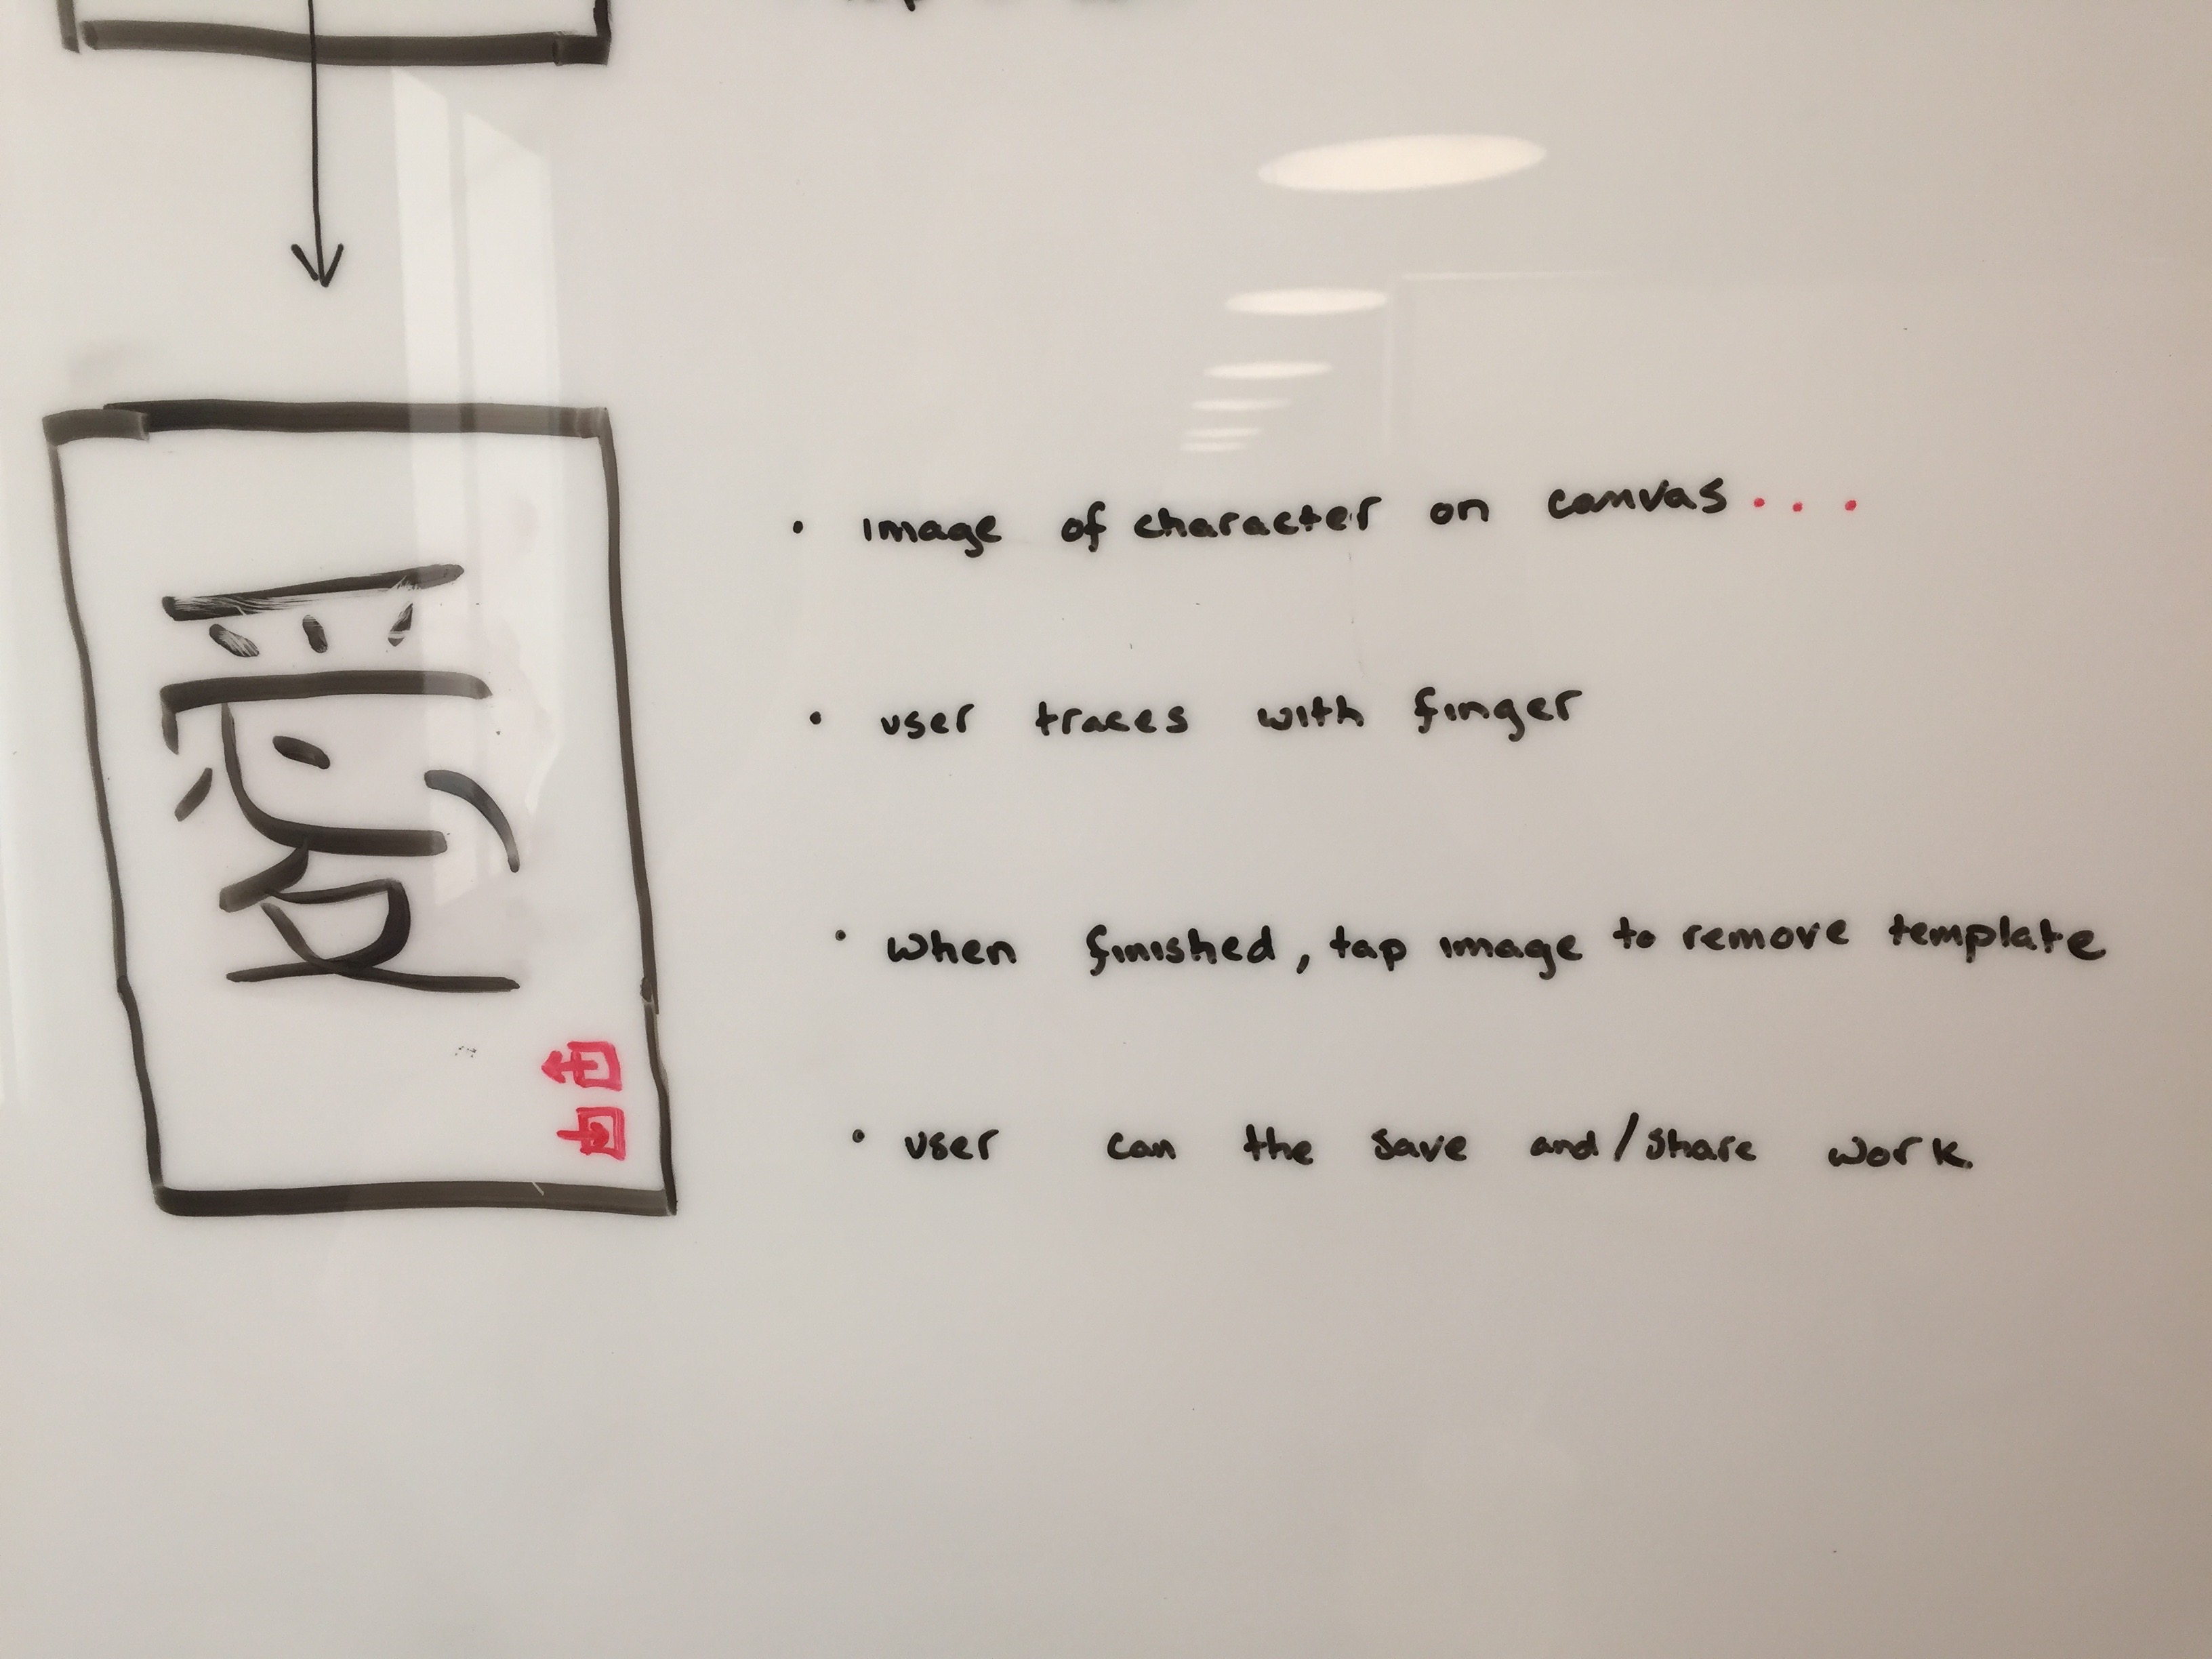 愛
• image of character on canvas...
• user traces with finger
• when finished, tap image to remove template
• user can the save and/share work.